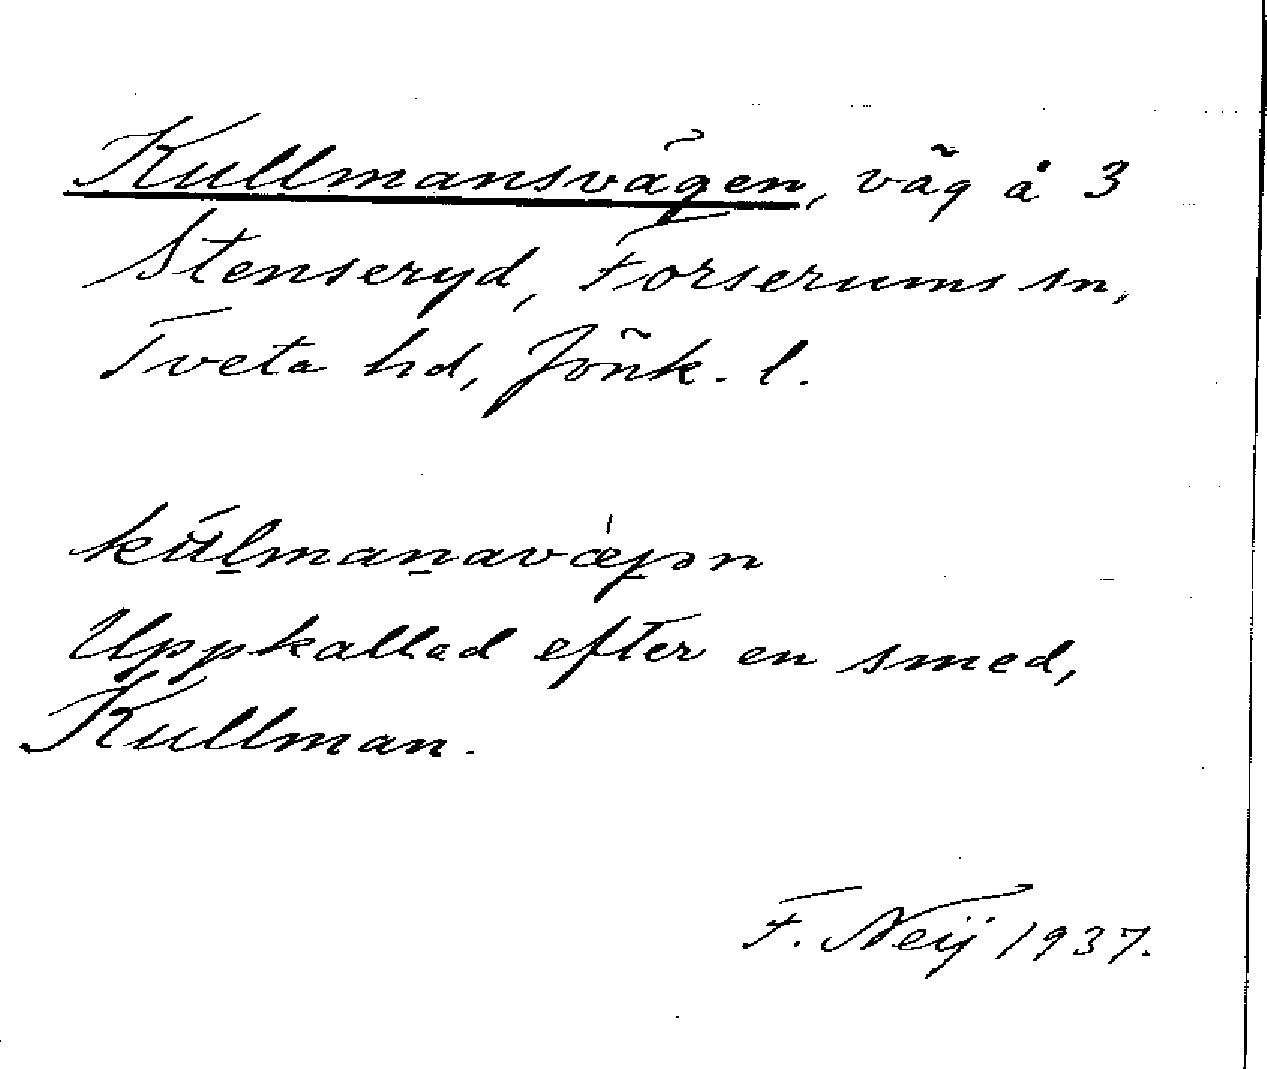 Kullmansvägen, väg å 3
Stenseryd, Forserums sn,
Tveta hd, Jönk. l.
Uppkallad efter en smed,
Kullman.
F. Neij 1937.